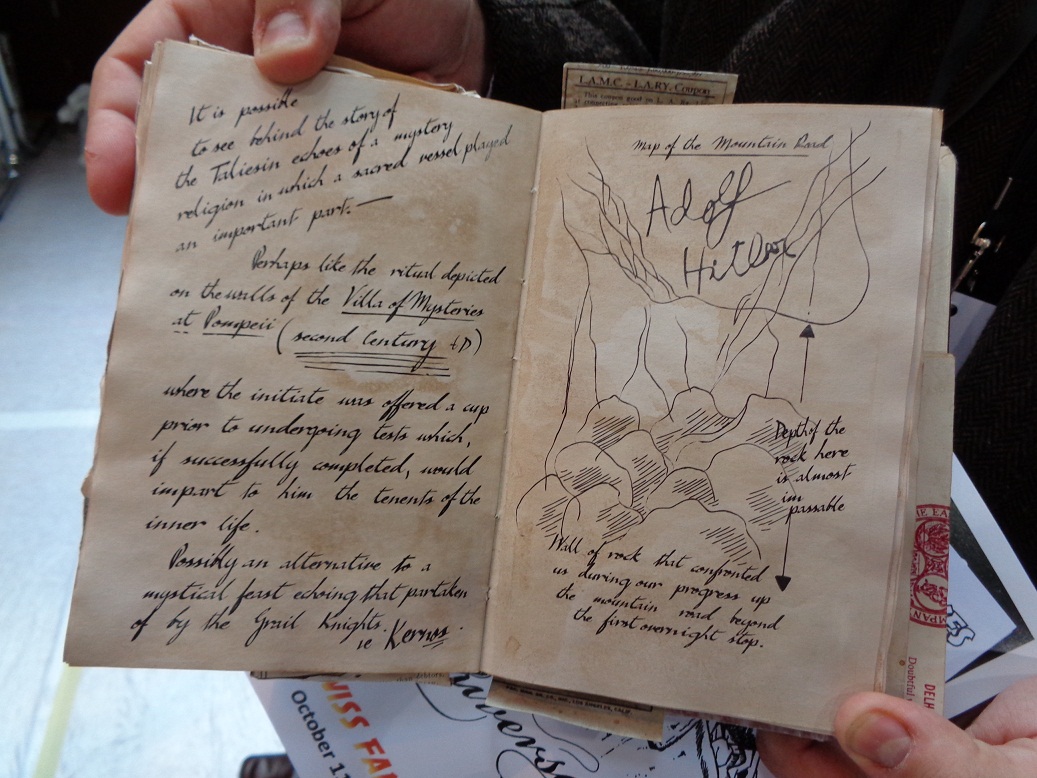 It is possible
to see behind the story of
the Taliesin echoes of a mystery
religion in which a sacred vessel played
an important part.—
Perhaps like the ritual depicted
on the walls of the Villa of Mysteries
at Pompeii (second Century AD)
where the initiate was offered a cup
prior to undergoing tests which,
if successfully completed, would
impart to him the tenents of the
inner life.
Possibly an alternative to a
mystical feast echoing that partaken
of by the Grail Knights.
ie Kernos.
L.A.M.C. - L.A.RY. Coupon
Map of the Mountain Road
Adolf
Hitler
Depth of the
rock here
is almost
im
passable
Wall of rock that confronted
us during our progress up
the mountain road beyond
the first overnight stop.
WISS FA
October 11
DELH
Doubtful